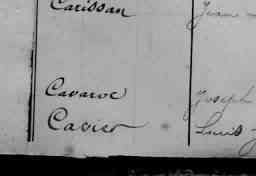 Carissan Jeanne
Cavaroc Joseph
Cavier Louis